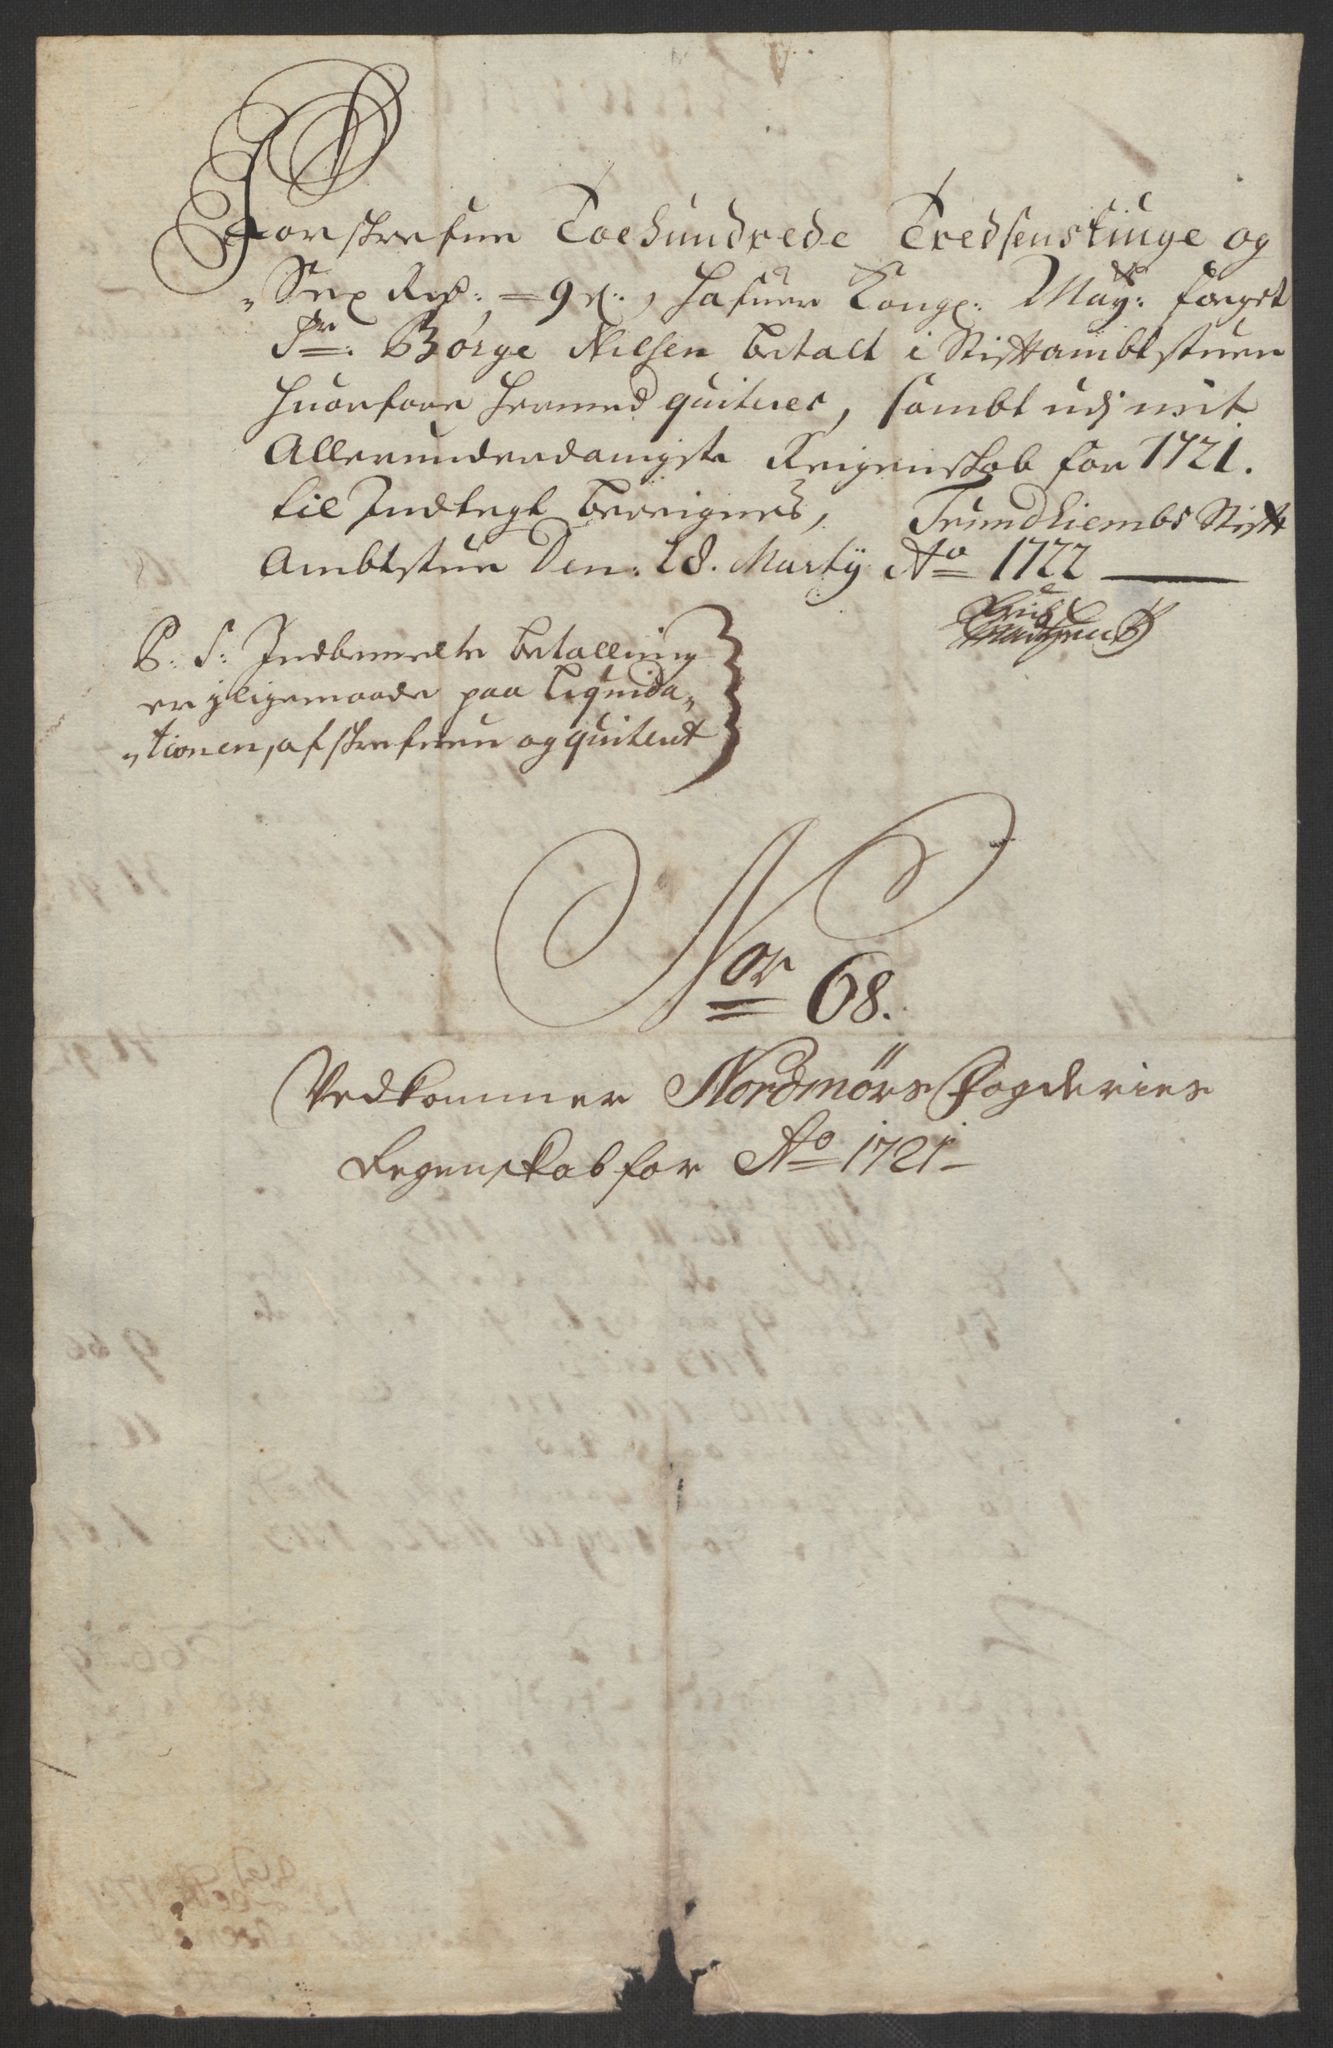 Forskrefne Toehundrede Tredsenstiuge og
Sex Rdr: = 9 s:, hafuer Kongl: May: fouget
Sr: Børge Nilsen betalt i Stiftambtstuen
huorfore hermed quiteres, sambt udj mit
Allerunderdanigste Reigenskab for 1721.
til Indtegt bereignes, Trundhiembs Stift
Ambtstue Den: 18. Marty Ao 1722
P: S: Indbemelte betalling
er j ligemaade paa Liquida„
„tionen, afskrefuen og quiterit
Nor 68.
Vedkommer Nordmørs Fogderies
Regenskab for Ao 1721